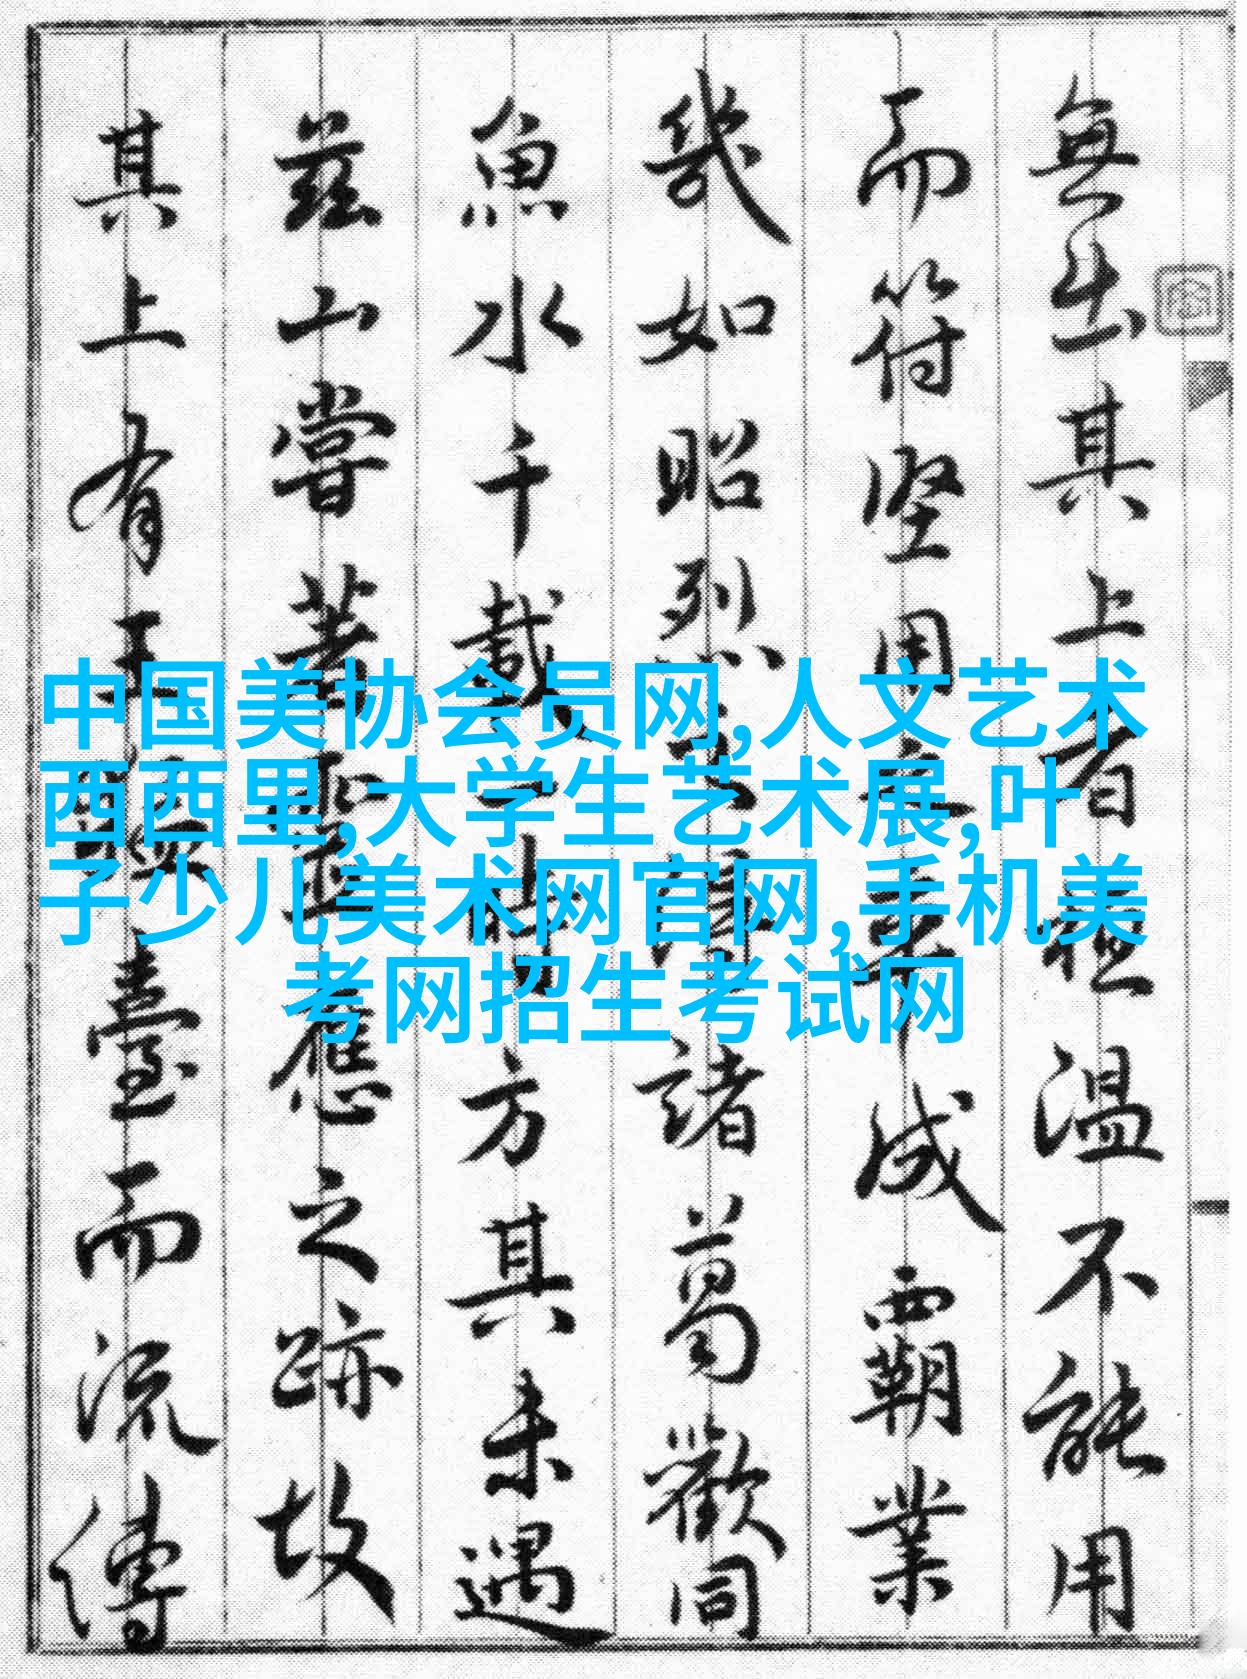 中国美协会员网,人文艺术
西西里,大学生艺术展,叶
子少儿美术网官网,手机美
考网招生考试网
無出其上者桓温不能用
而符坚用成霸業
幾如昭烈得諸葛歡同
魚水千載一時方其未遇
茲山嘗著應之跡故
其上有王猛臺而流傳